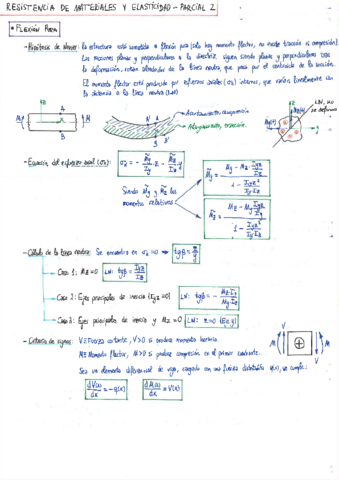 RESISTENCIA DE MATERIALES Y ELASTICIDAD - PARCIAL 2
• FLEXIÓN PURA
- Hipótesis de Navier: la estructura está sometida a flexión pura (solo hay momento flector, no existe tracción ni compresión).
Las secciones planas y perpendiculares a la directriz, siguen siendo planas y perpendiculares tras
la deformación, rotan alrededor de la línea neutra, que pasa por el centroide de la sección.
El momento flector está producido por esfuerzos axiales (σx) internos, que varían linealmente con
la distancia a la línea neutra (LN)
Acortamiento, compresión
Alargamiento, tracción.
- Ecuación del esfuerzo axial (σx):
Siendo M̃y y M̃z los
momentos relativos
- Cálculo de la línea neutra: Se encuentra en σx = 0 → tgβ = z/y
Caso 1: Mz = 0 LN: tgβ = Iyz/Iz
Caso 2: Ejes principales de inercia (Iyz = 0) LN: tgβ = - Mz·Iy/My·Iz
Caso 3: Ejes principales de inercia y Mz = 0 LN: z = 0 (Eje y)
- Criterio de signos: V ≡ Fuerza cortante, V > 0 si produce momento horario.
M ≡ Momento flector, M > 0 si produce compresión en el primer cuadrante.
Sea un elemento diferencial de viga, cargado con una fuerza distribuida q(x), se cumple:
dV(x)/dx = -q(x) dM(x)/dx = V(x)